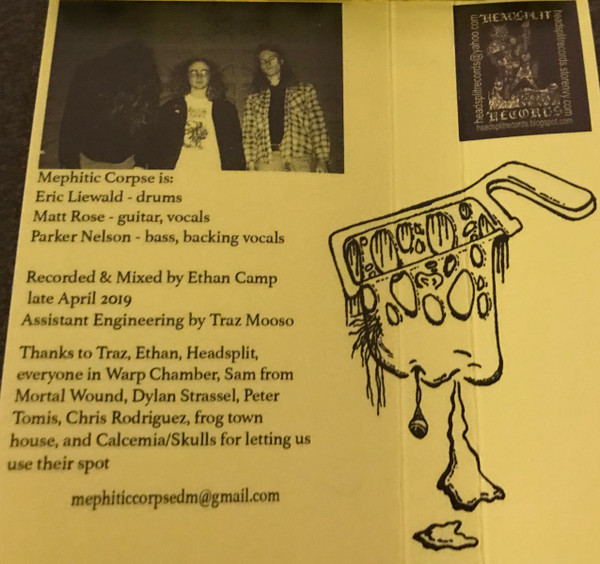 Mephitic Corpse is:
Eric Liewald - drums
Matt Rose - guitar, vocals
Parker Nelson - bass, backing vocals
Recorded & Mixed by Ethan Camp
late April 2019
Assistant Engineering by Traz Mooso
Thanks to Traz, Ethan, Headsplit,
everyone in Warp Chamber, Sam from
Mortal Wound, Dylan Strassel, Peter
Tomis, Chris Rodriguez, frog town
house, and Calcemia/Skulls for letting us
use their spot
mephiticcorpsedm@gmail.com
HEADSPLIT
RECORDS
headsplitrecords@yahoo.com
headsplitrecords.storenvy.com
headsplitrecords.blogspot.com